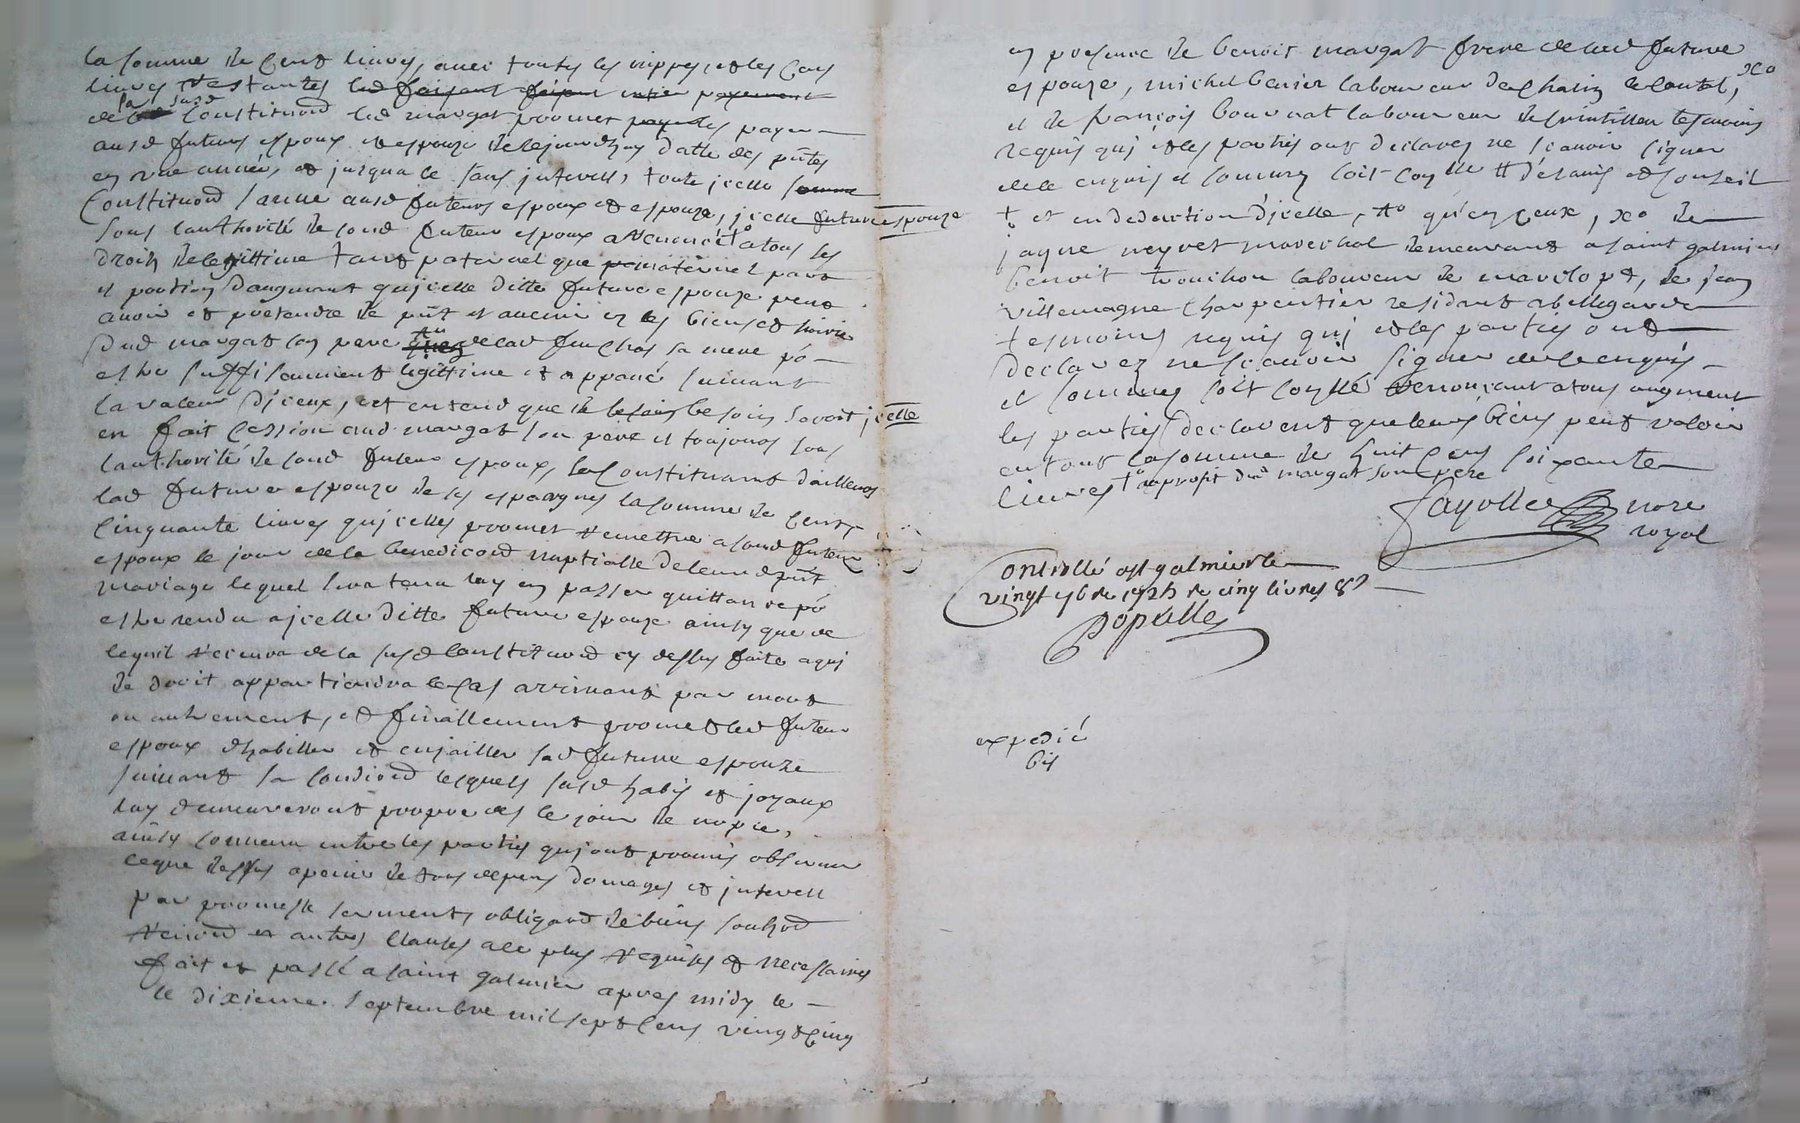 la somme de cent livres, avec toutes les nippes, et les cens
livres restantes led faisant faisant entier payement
de la susd constituond led margat promet payer les payer
ausd futurs espoux et espouze de ce jourdhuy datte des pntes
en une année, et jusqua ce sans jnterest, toute jcelle somme
constituond ausd futeurs espoux et espouze, jcelle future espouze
sous lauthorité de sond futeur espoux a renoncé a tous les
droits de legittime tant paternel que maternel part
et portion daugment qujcelle ditte future espouze peut
avoir et pretendre de pnt et avenir ez les biens et hoirie
dud margat son pere et de lad sa mere po
estre suffisamment legittime et apparié suivant
la valeur djceux, et entend que de besoin seroit jcelle
en fait cession aud margat son pere et toujours sous
lauthorité de sond futeur espoux, se constituant dailleurs
lad future espouze de ses espargnes la somme de cent
cinquante livres qujcelles promet remettre a sond futeur
espoux le jour de la benediciond nuptialle de leurd pnt
mariage lequel sera tenu luy en passer quittance po
estre rendu a jcelle ditte future espouze ainsy que de
ce quil recevra de la susd constituond cy dessus faite a qui
de droit appartiendra le cas arrivant par mort
ou autrement, et finallement promet led futeur
espoux dhabiller et enjailler sad future espouze
suivant sa condiond lesquels susd habis et joyaux
luy demeureront propre des le jour de nopce,
ainsy convenu entre les parties qui ont promis observer
ceque dessus a peine de tous depens domages et jnterest
par promesse serments obligaond de biens soubmiond
renond et autres clauses a ce plus requises et necessaires
fait et passé a saint galmier apres midy le
le dixieme septembre mil sept cens vingt cinq
en presence de benoit margat frere de lad future
espouze, michel laboureur de
et de françois laboureur de tesmoins
requis qui et les parties ont declarez ne scavoir signer
de ce enquis et sommez soit conlle et conseil
+ et en deduction djcelle, qu'en ceux, xo de
jaque neyret marechal demeurant a saint galmier
benoit trouillon laboureur de de jean
villemagne charpentier residant a bellegarde
tesmoins requis qui et les parties ont
declarez ne scavoir signer de ce enquis
et sommez soit conllé renonçant a tous augment
les parties declarent que leurs biens peut valoir
en tout la somme de huit cens soixante
livres + au profit dud margat son pere
Fayolle nore
royal
Controllé a st galmier le
vingt 7bre 1725 re cinq livres 8s
Populle
expedié
bis